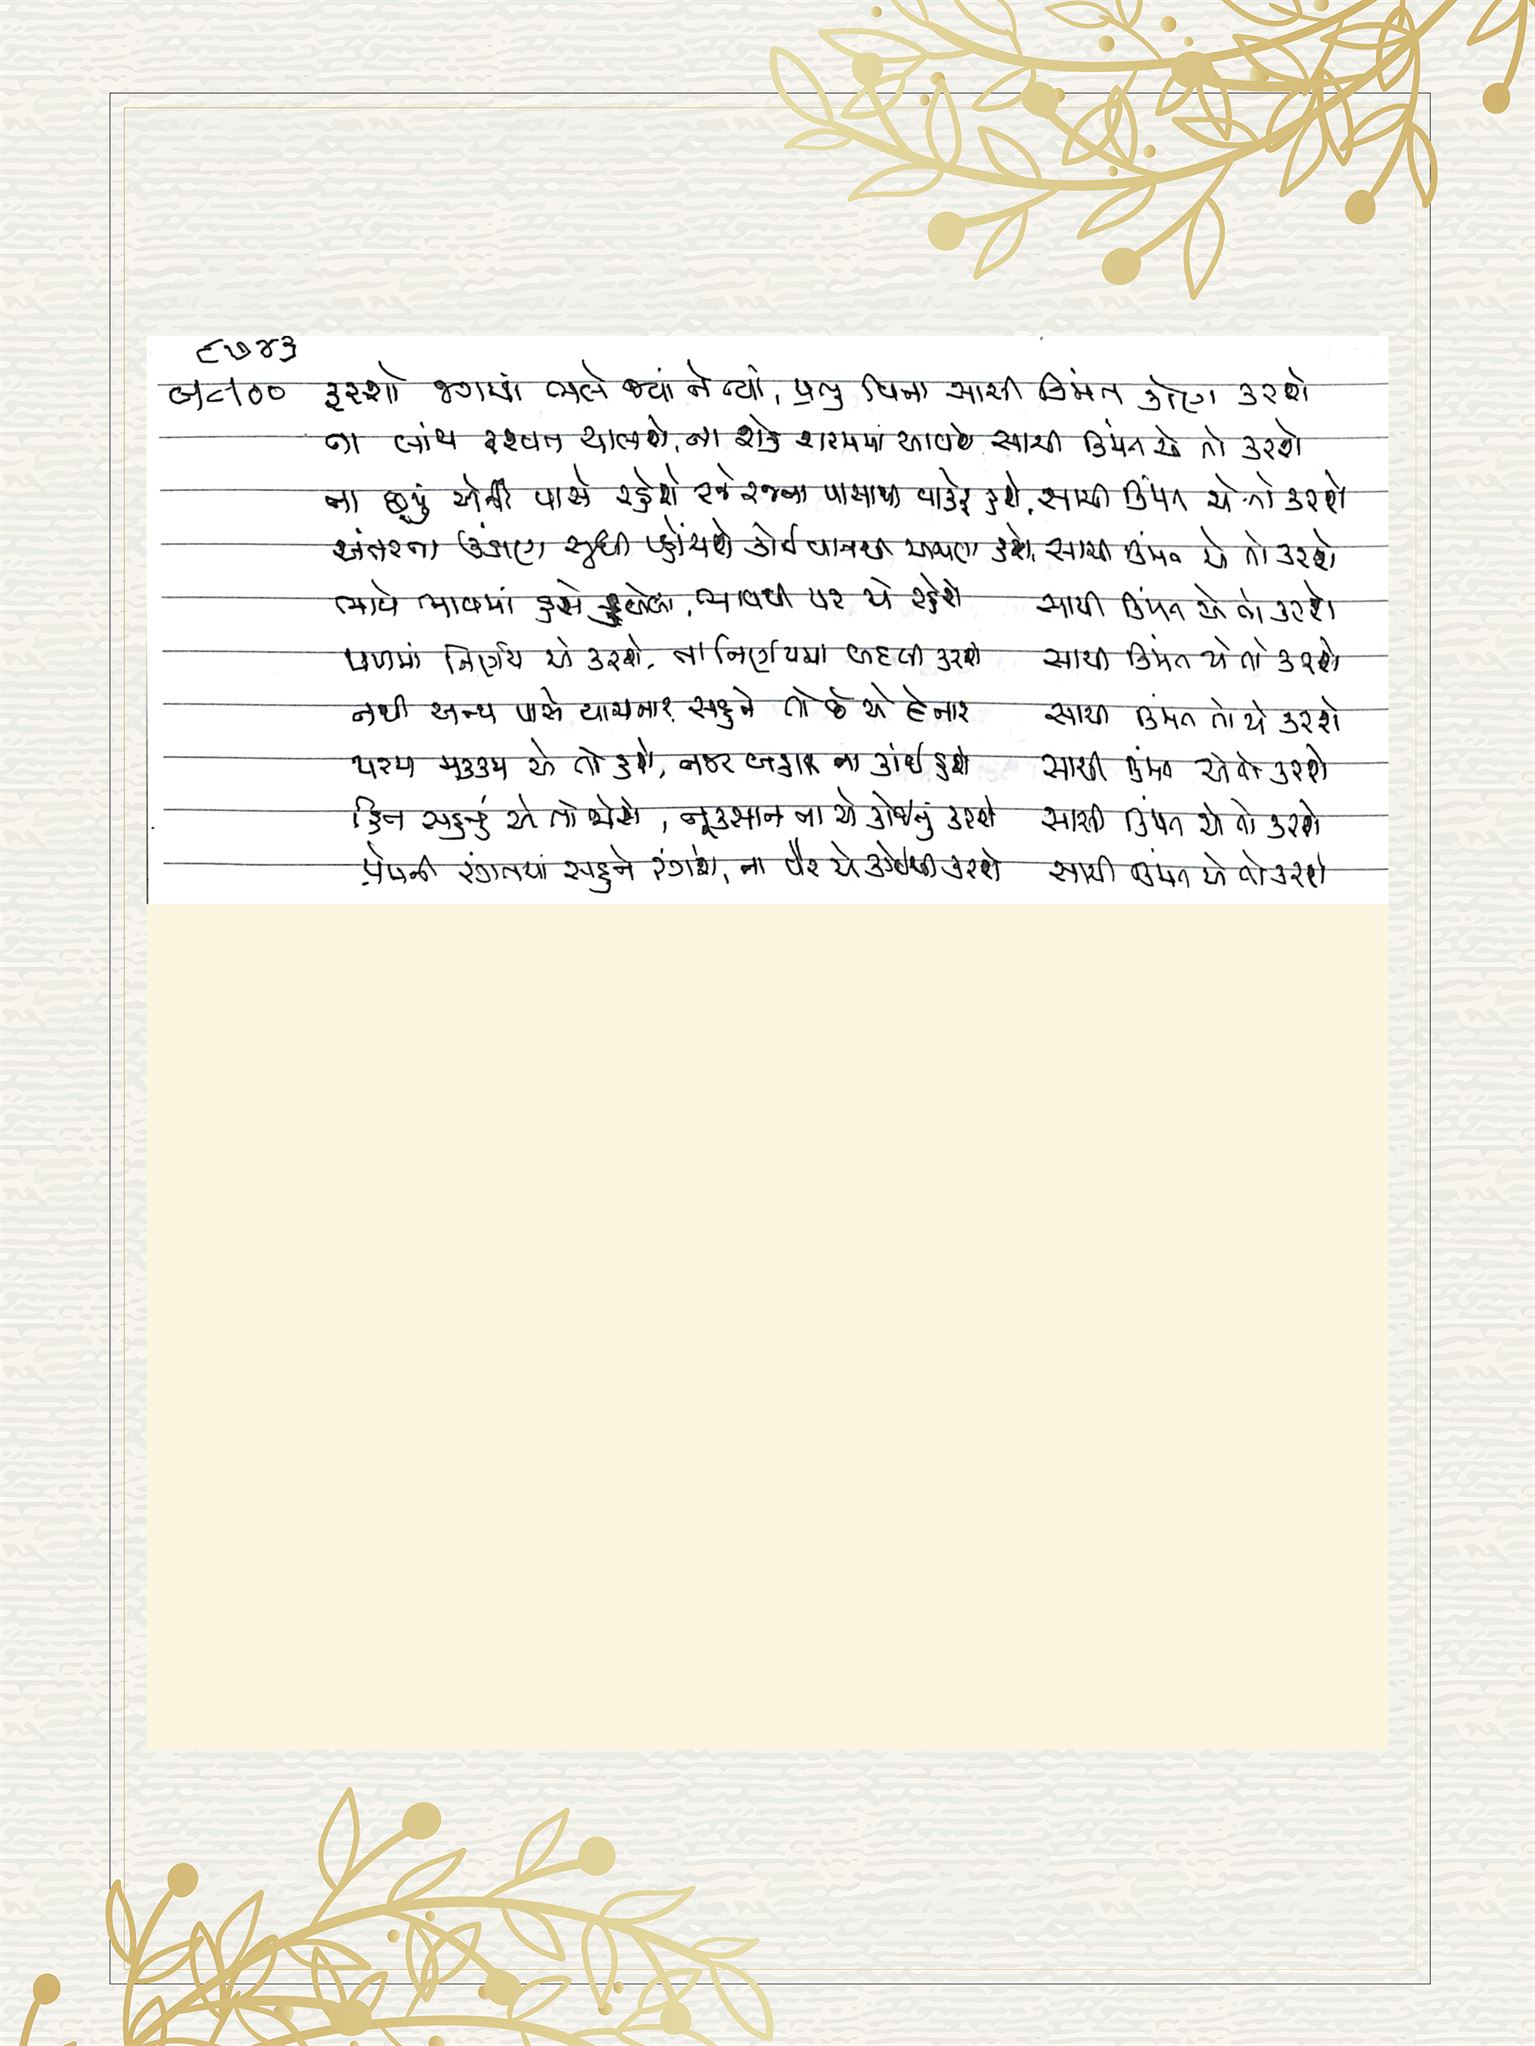 ૮૭૪૩
ફરશો જગમાં ભલે જ્યાં ને ત્યાં, પ્રભુ વિના સાચી કિંમત કોણ કરશે
ના લાંચ રૂશ્વત ચાલશે, ના શેહ શરમમાં આવશે સાચી કિંમત એ તો કરશે
ના છૂપું એની પાસે રહેશે રજે રજના પાસાથી વાકેફ હશે, સાચી કિંમત એ તો કરશે
અંતરના ઊંડાણ સુધી પહોંચશે કોઈ વાતથી અજાણ હશે, સાચી કિંમત એ તો કરશે
ભાવે ભાવમાં હશે, ભાવથી પર એ રહેશે સાચી કિંમત એ તો કરશે
પળમાં નિર્ણય એ કરશે, ના નિર્ણયમાં બદલી કરશે સાચી કિંમત એ તો કરશે
નથી અન્ય પાસે યાચનાર, સહુને તો છે એ દેનાર સાચી કિંમત તો એ કરશે
પરમ મક્કમ એ તો હશે, નજર બહાર ના કાંઈ હશે સાચી કિંમત એ તો કરશે
હિત સહુનું એ તો જોશે, નુકસાન ના એ કોઈનું કરશે સાચી કિંમત એ તો કરશે
પ્રેમની રંગતમાં સહુને રંગશે, ના વૈર એ કોઈથી કરશે સાચી કિંમત એ તો કરશે